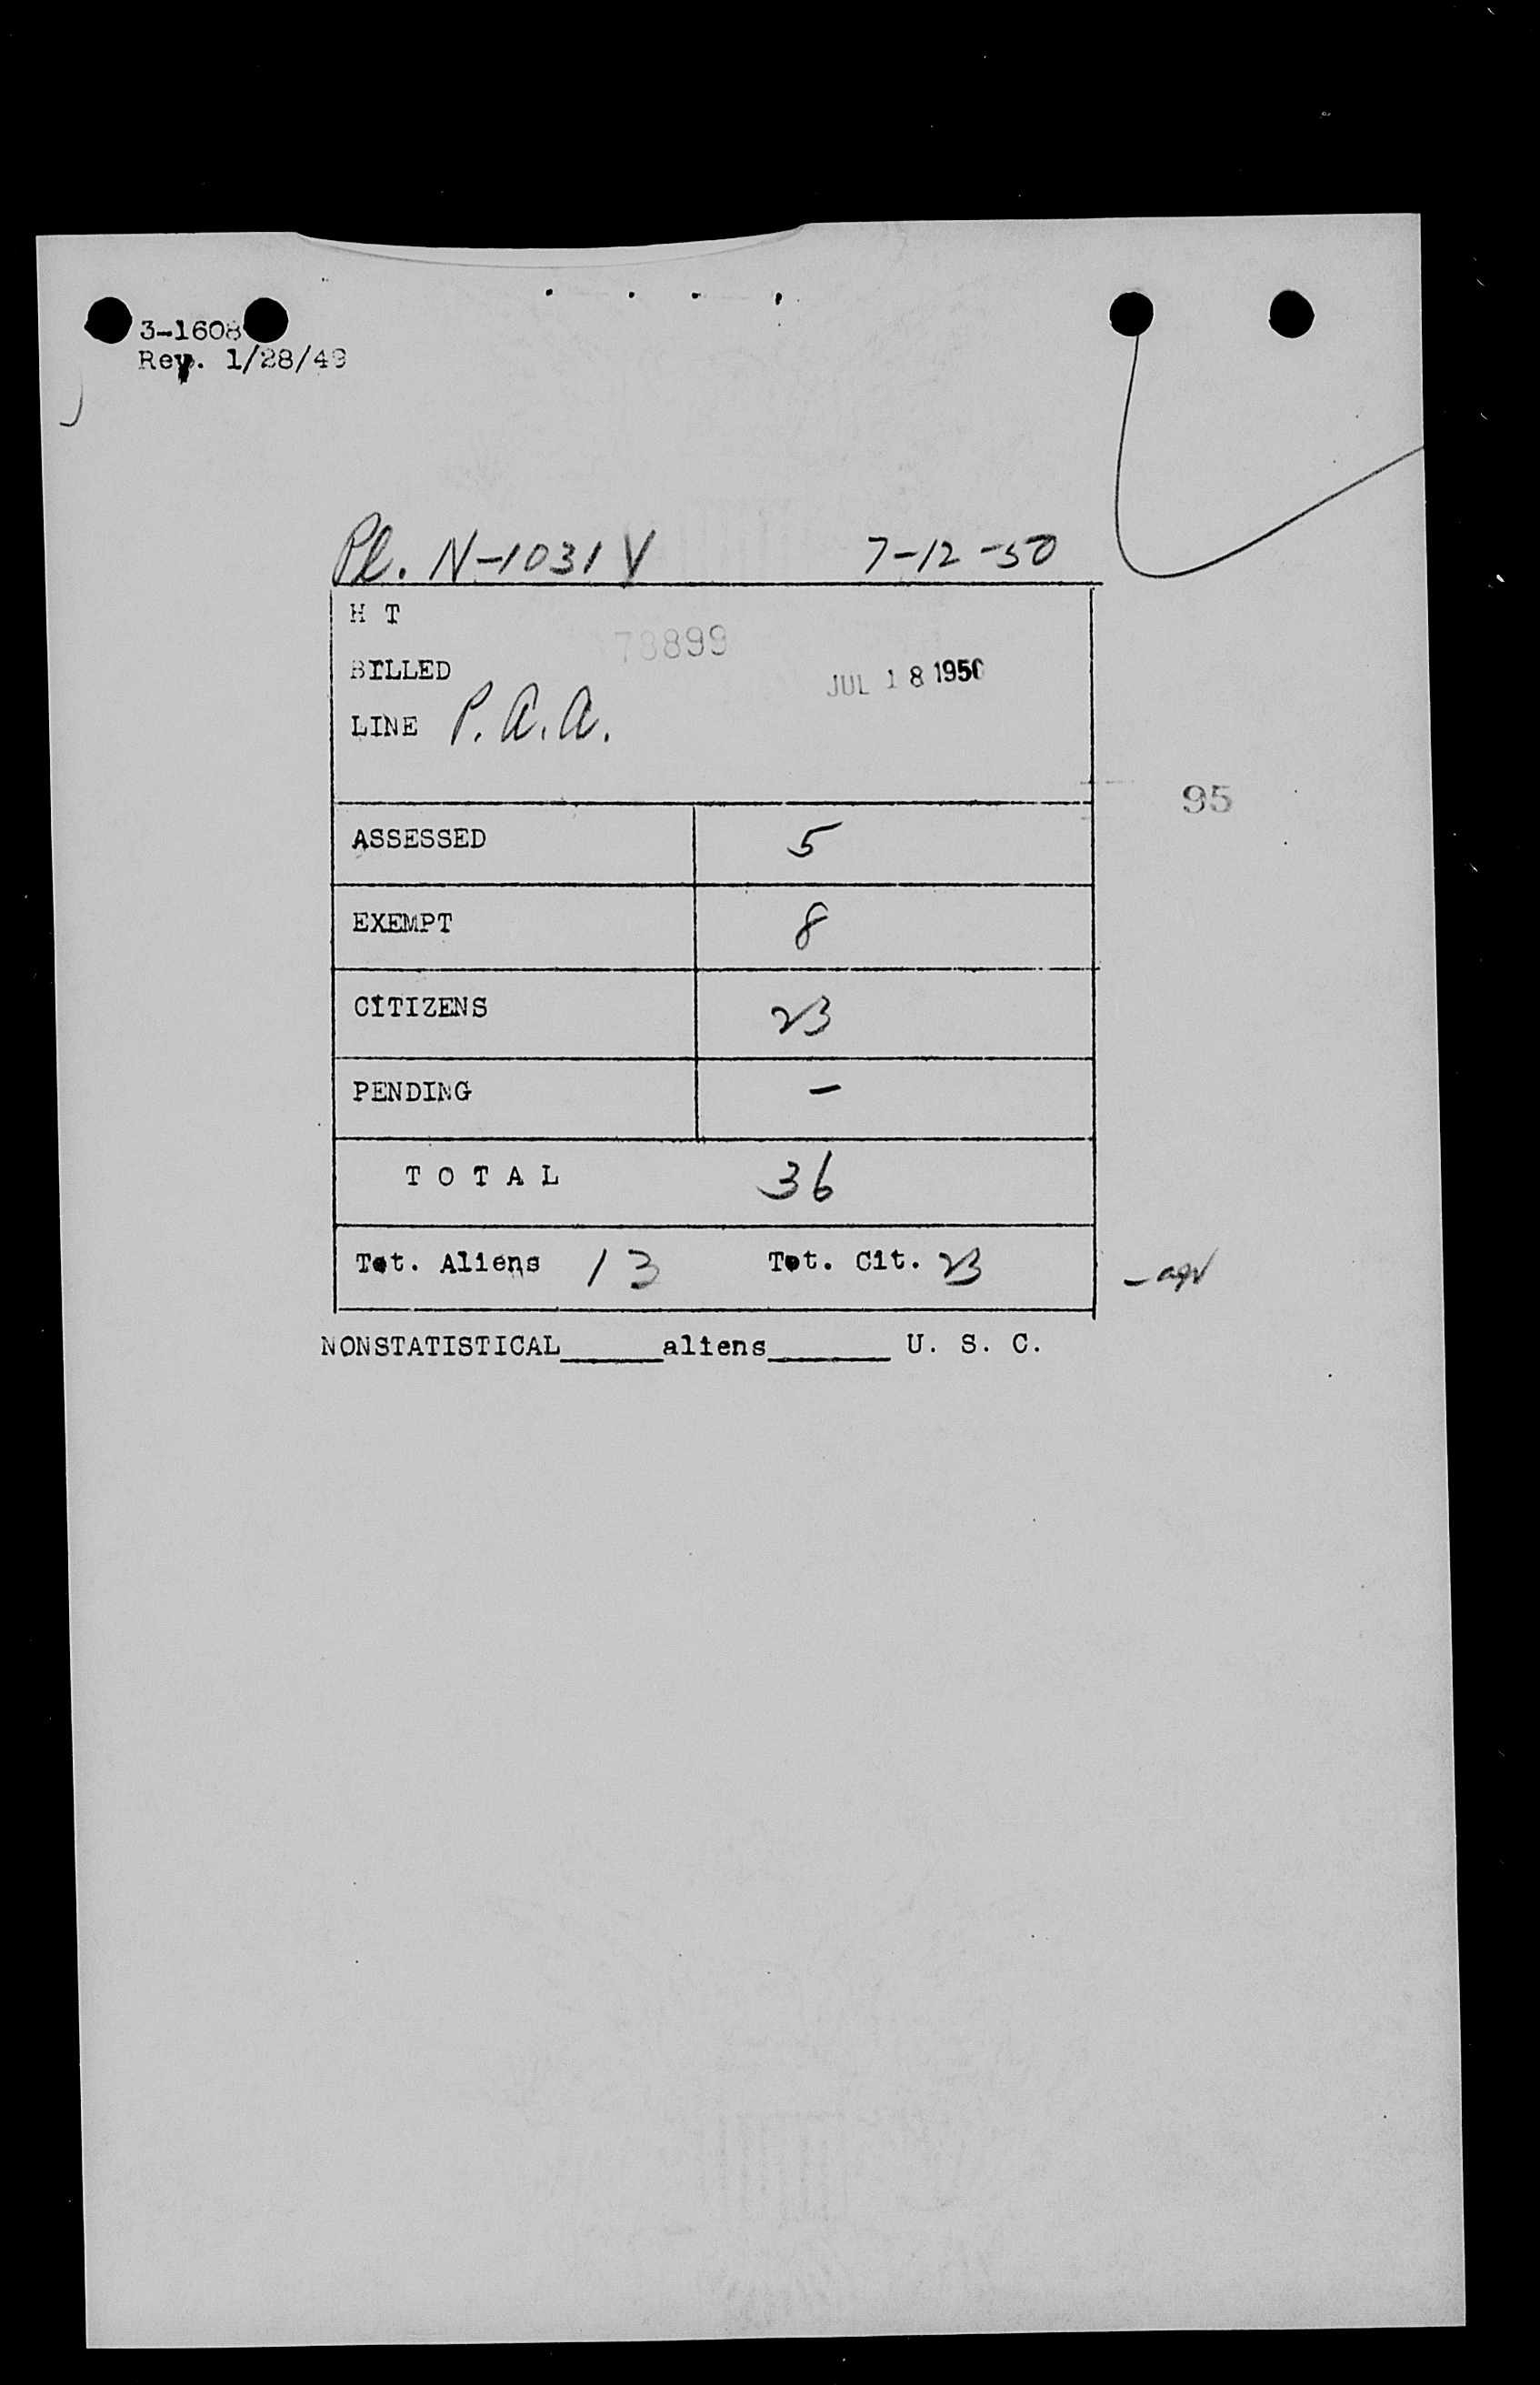 3-1608
Rev. 1/28/49
Pl. N-1031V 7-12-50
H T
78899
BILLED JUL 18 1950
LINE P.A.A.
95
ASSESSED 5
EXEMPT 8
CITIZENS 23
PENDING -
TOTAL 36
Tot. Aliens 13 Tot. Cit. 23
NONSTATISTICAL_____aliens______ U. S. C.